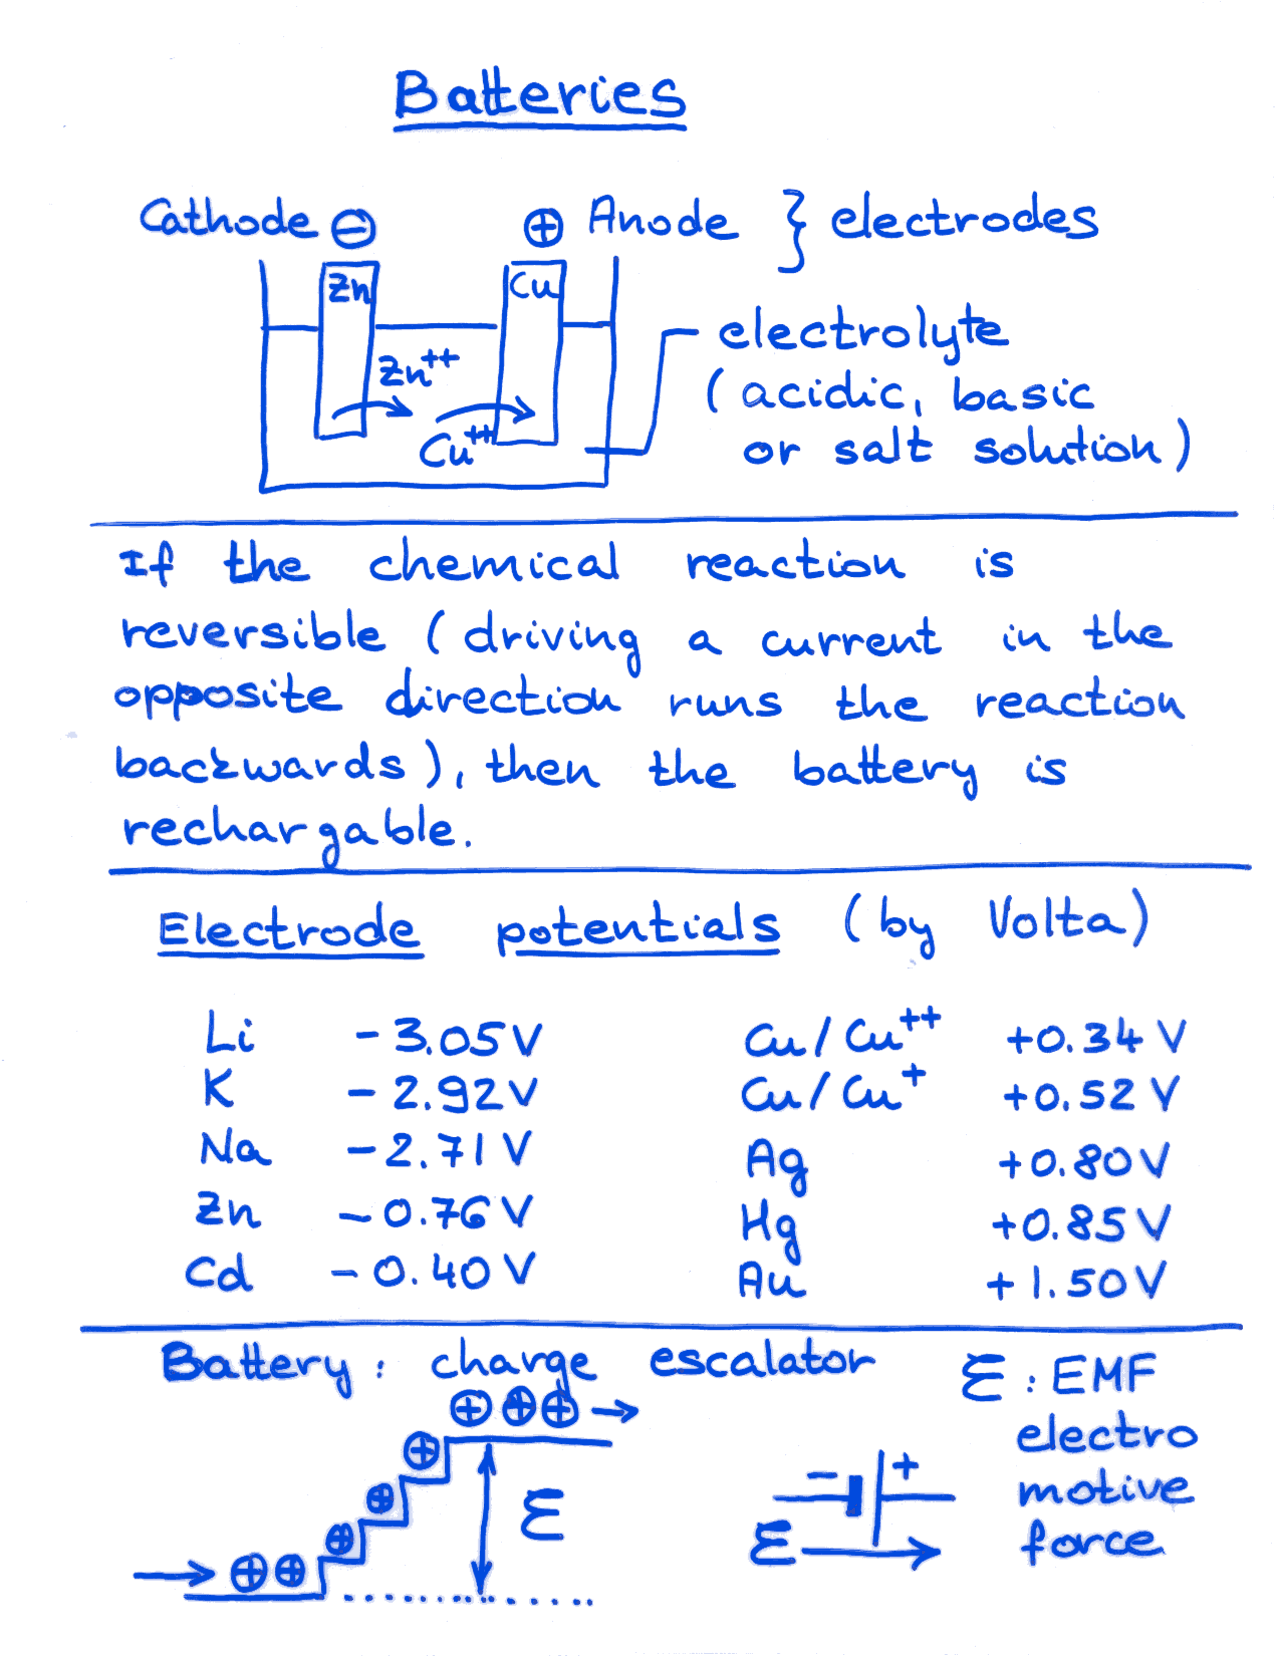 Batteries
Cathode ⊖ ⊕ Anode } electrodes
Zn Cu
electrolyte
Zn⁺⁺
(acidic, basic
Cu⁺⁺
or salt solution)
If the chemical reaction is
reversible (driving a current in the
opposite direction runs the reaction
backwards), then the battery is
rechargable.
Electrode potentials (by Volta)
Li -3.05 V Cu/Cu⁺⁺ +0.34 V
K -2.92 V Cu/Cu⁺ +0.52 V
Na -2.71 V Ag +0.80 V
Zn -0.76 V Hg +0.85 V
Cd -0.40 V Au +1.50 V
Battery: charge escalator
ℰ: EMF
⊕ ⊕ ⊕ →
electro
⊕
- +
motive
⊕
ℰ
force
⊕
ℰ →
→ ⊕ ⊕